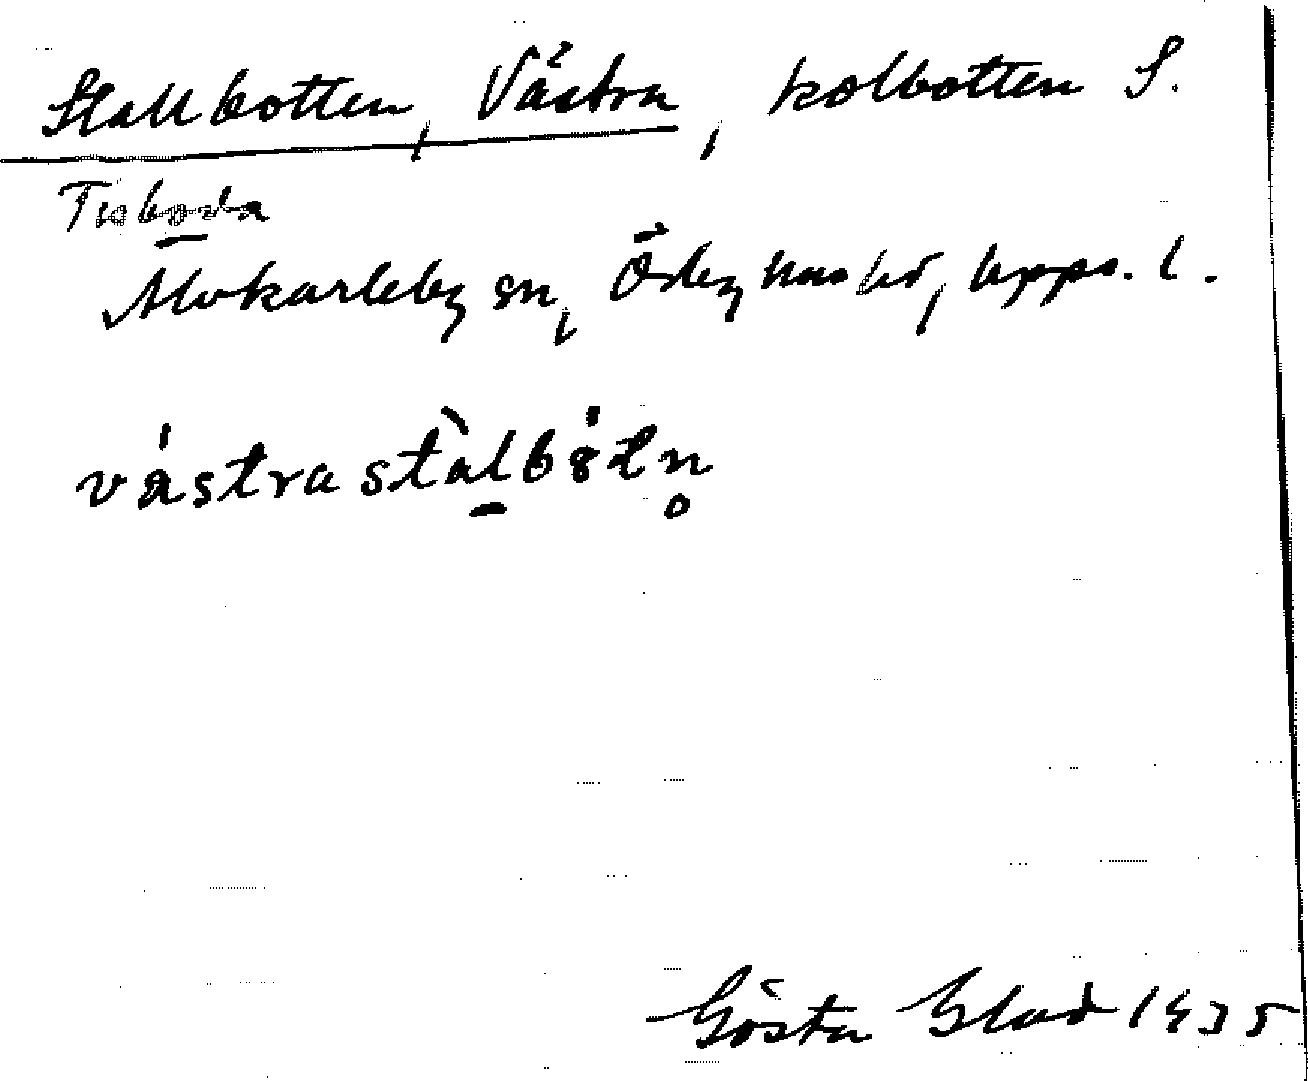 Stallbotten, Västra, kolbotten S.
Tisboda
Älvkarleby sn, Örbyhus hd, Upps. l.
västra stàlbòtn̥
Gösta Blad 1935